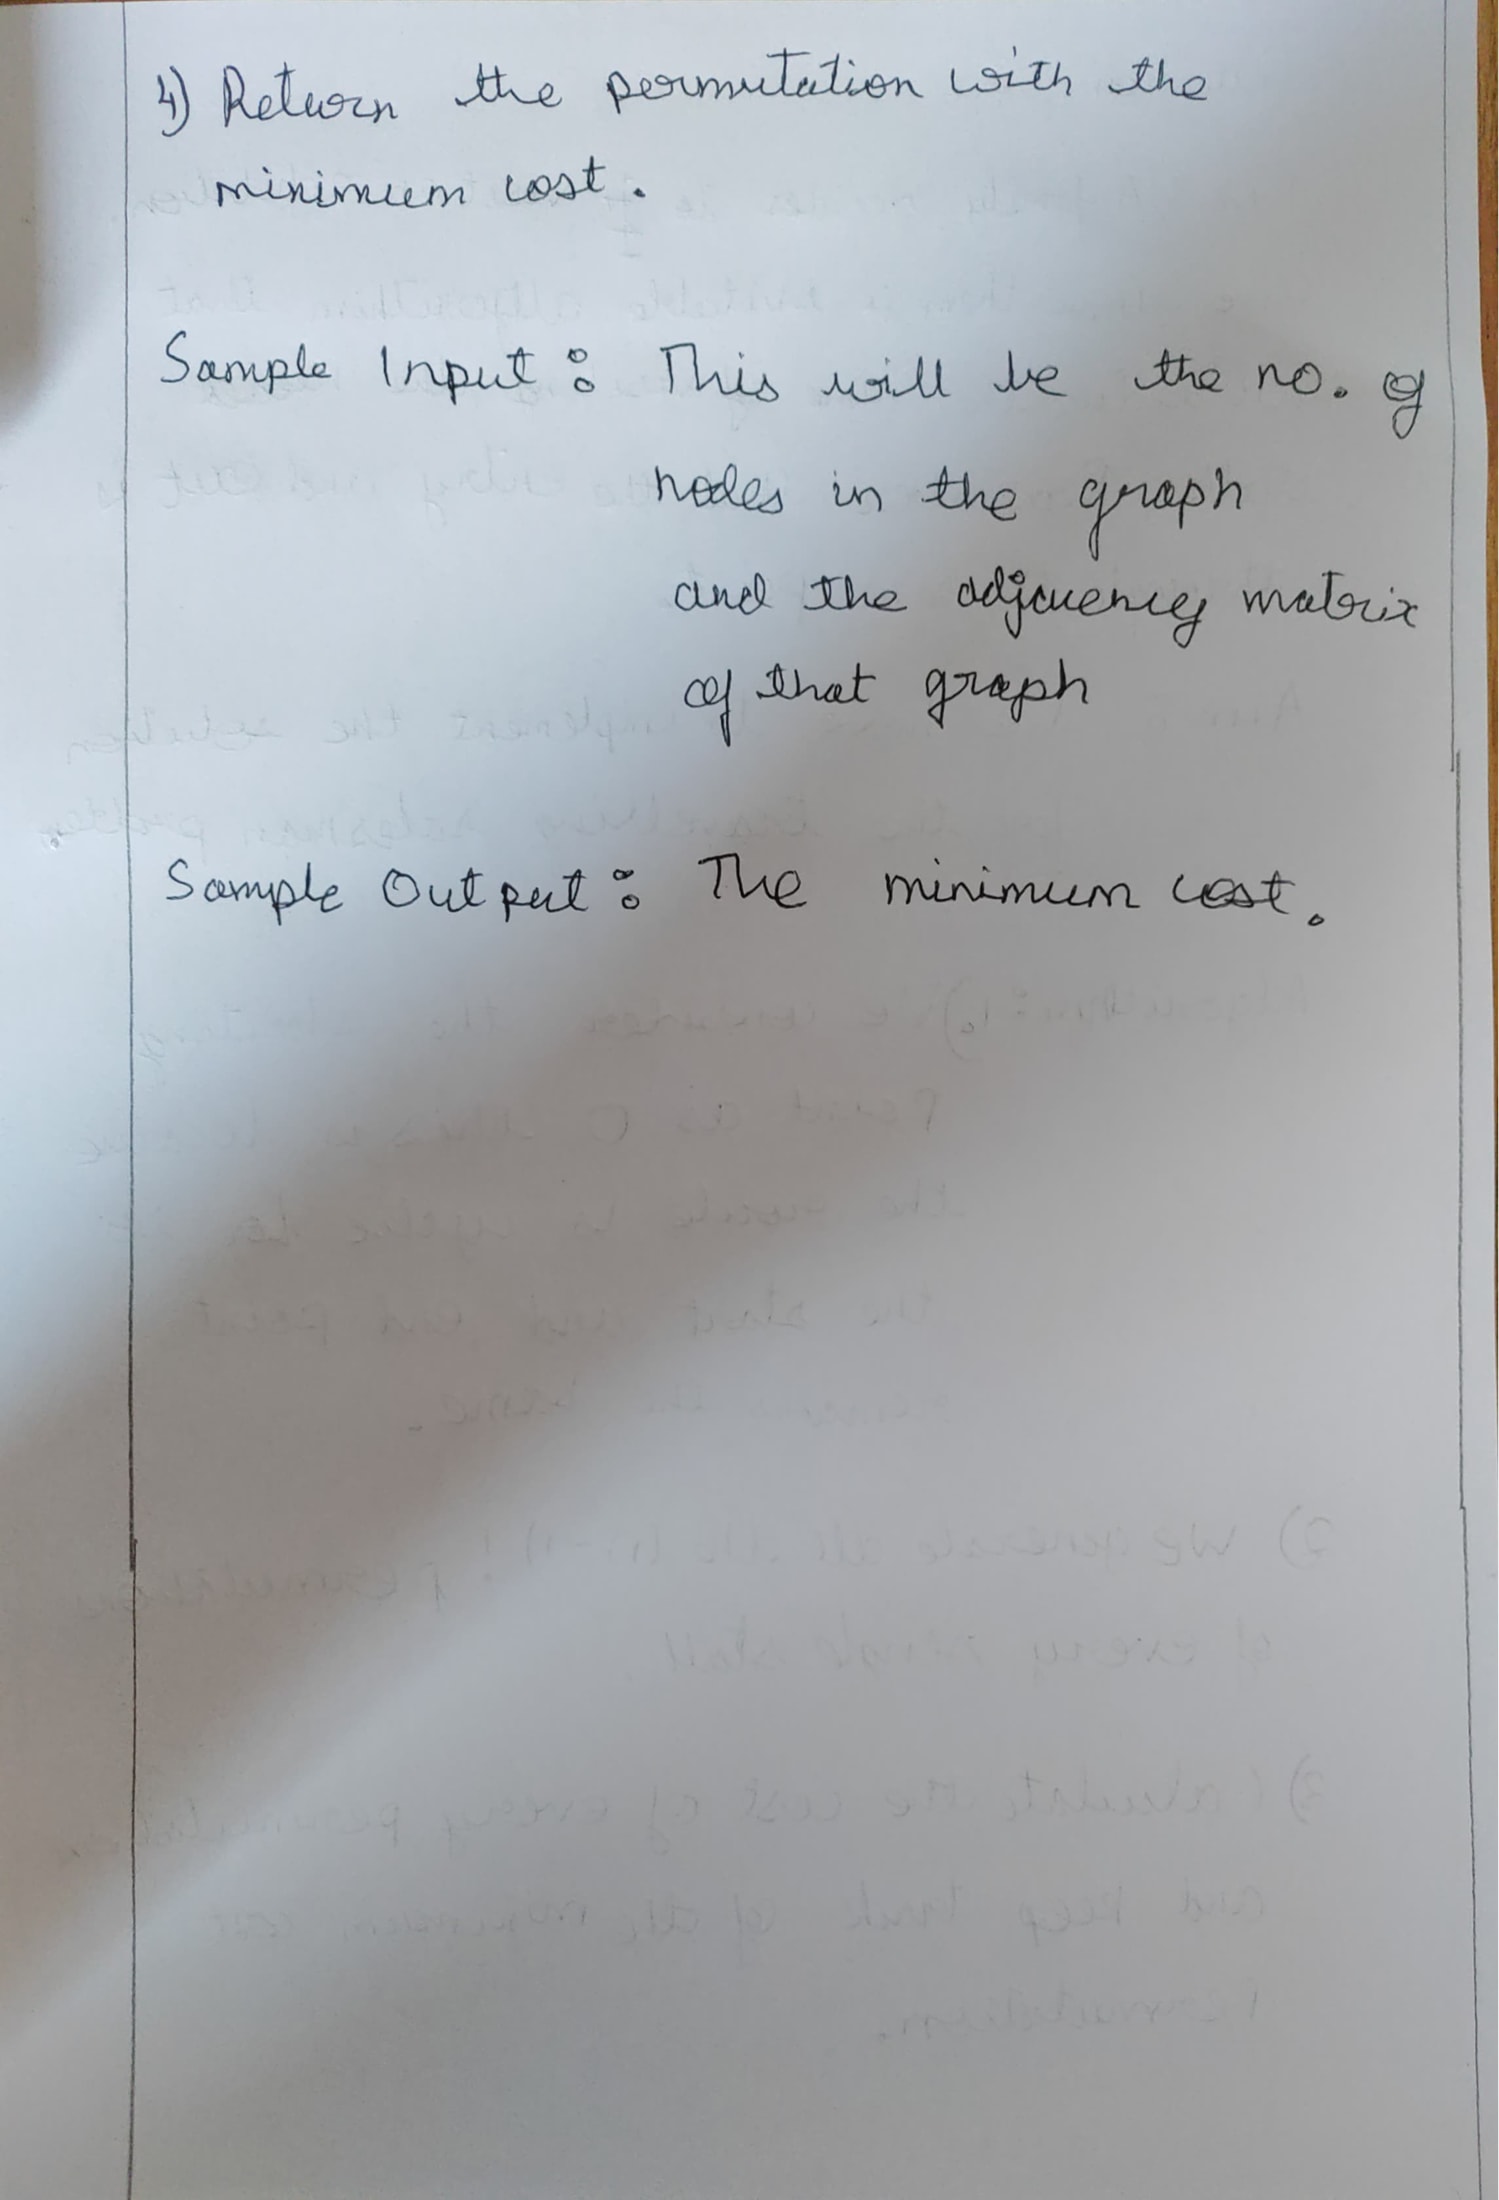 4) Return the permutation with the
minimum cost.
Sample Input : This will be the no. of
nodes in the graph
and the adjacency matrix
of that graph
Sample Output : The minimum cost.